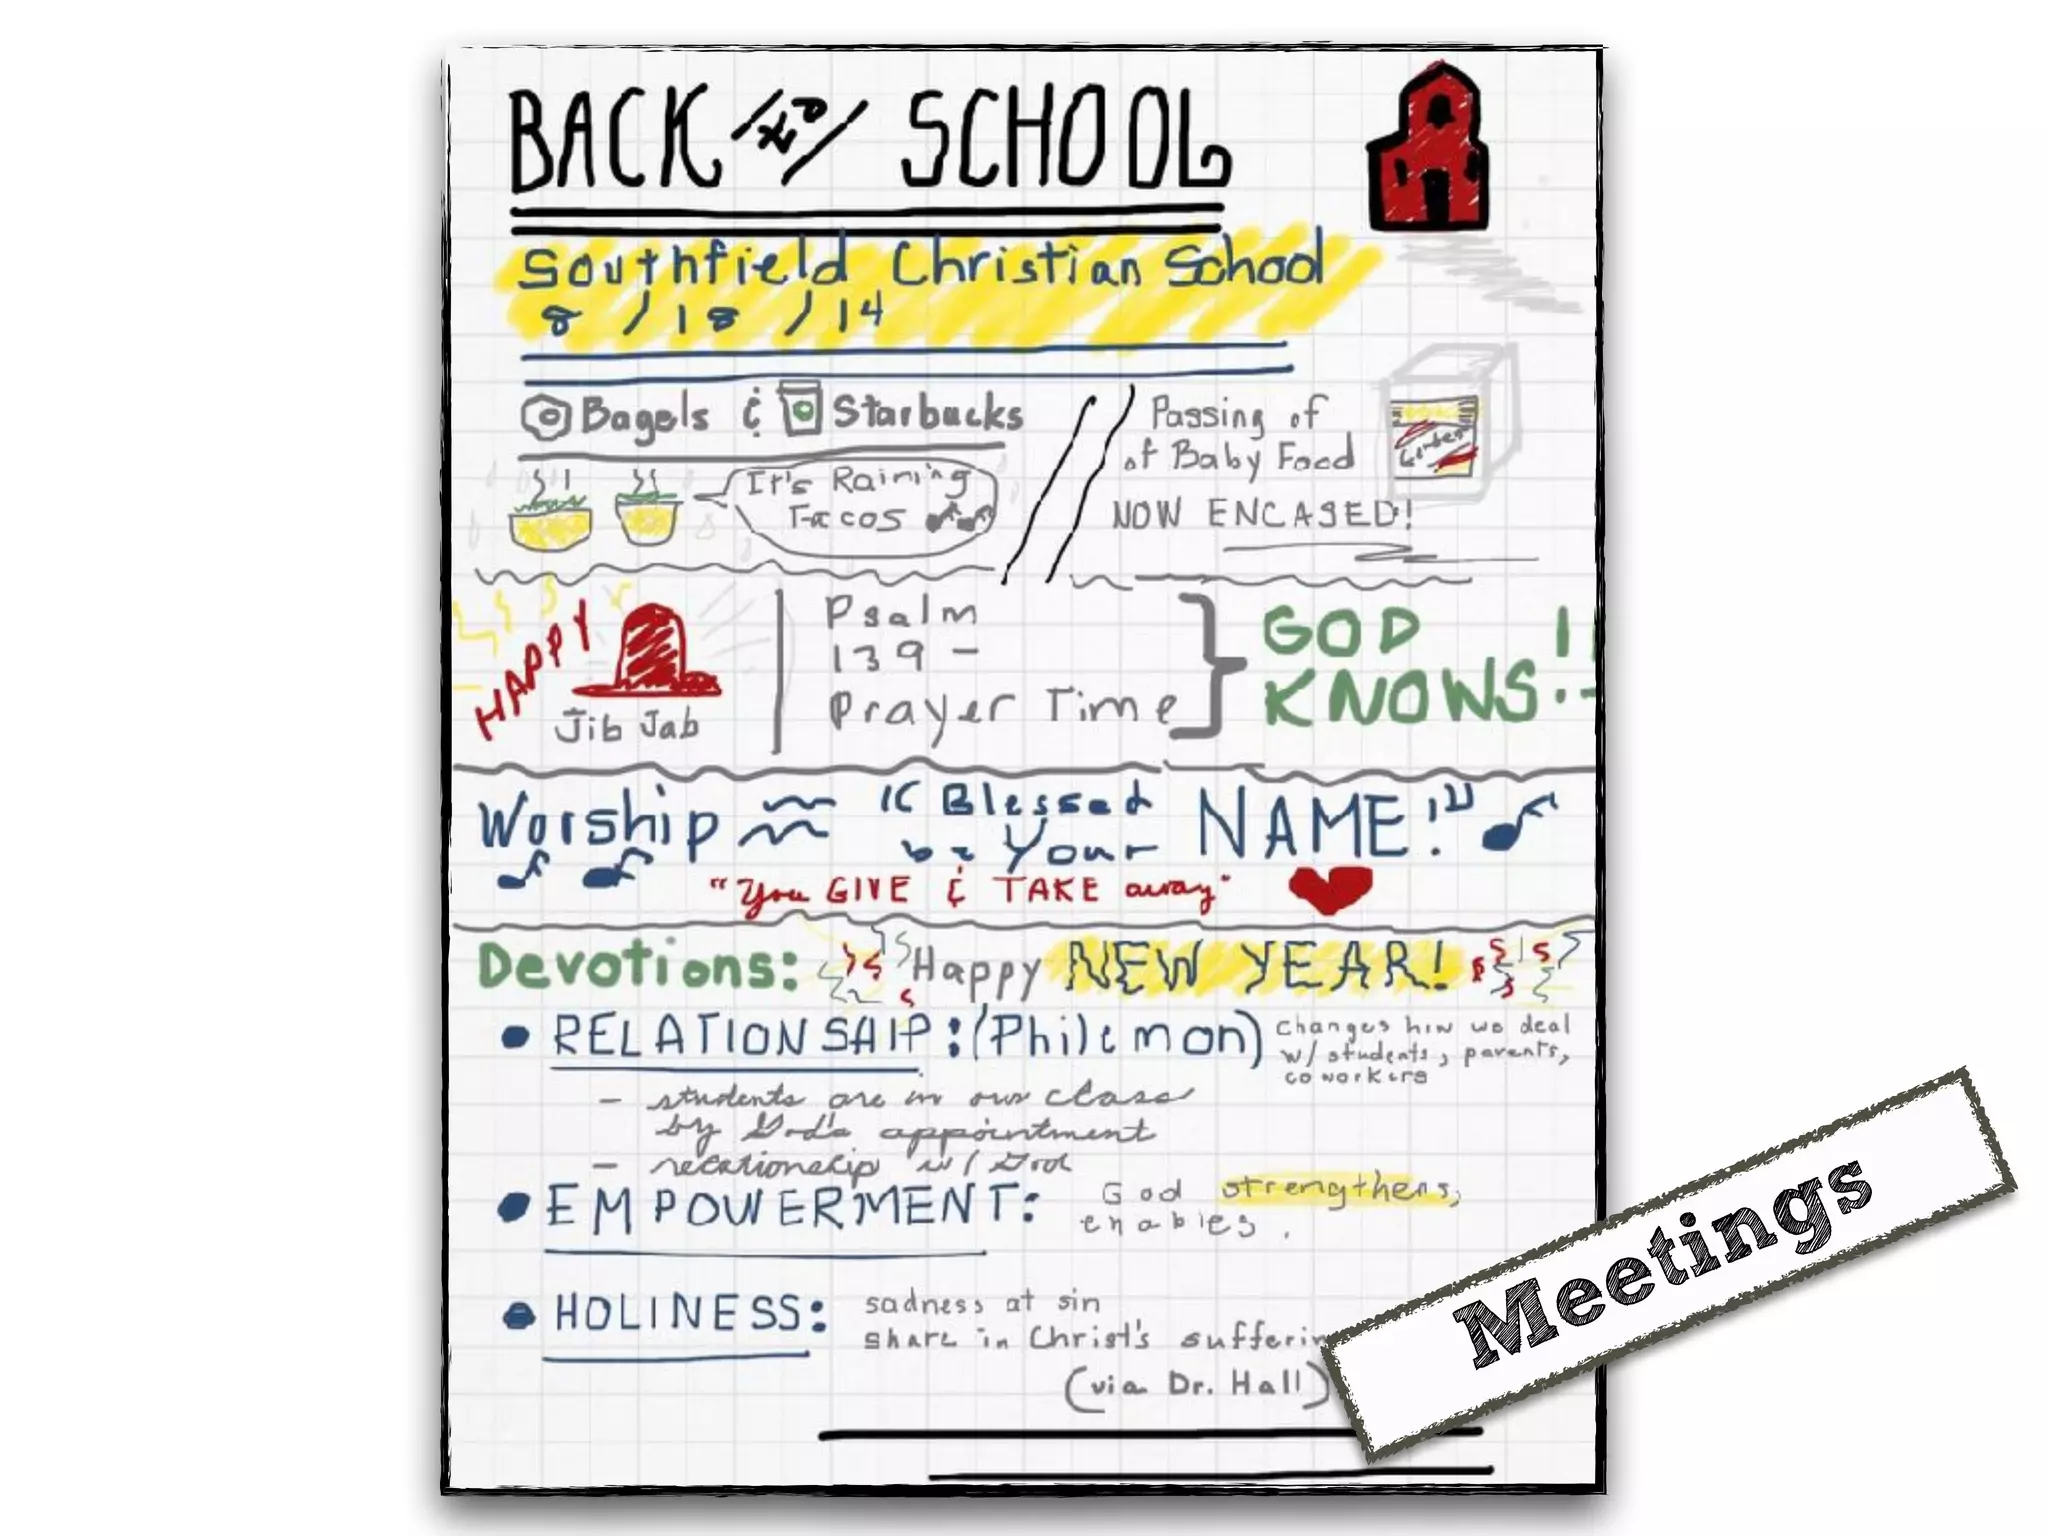 BACK to SCHOOL
Southfield Christian School
8/18/14
Bagels & Starbucks
It's Raining
Tacos
Passing of
of Baby Food
NOW ENCASED!
Gerber
HAPPY
Jib Jab
Psalm
139 -
Prayer Time
GOD
KNOWS!!
Worship "Blessed
be Your NAME!"
"You GIVE & TAKE away"
Devotions: Happy NEW YEAR!
• RELATIONSHIP: (Philemon) changes how we deal
w/ students, parents,
coworkers
- students are in our class
by God's appointment
- relationship w/ God
• EMPOWERMENT: God strengthens,
enables.
• HOLINESS: sadness at sin
share in Christ's sufferin
(via Dr. Hall)
Meetings